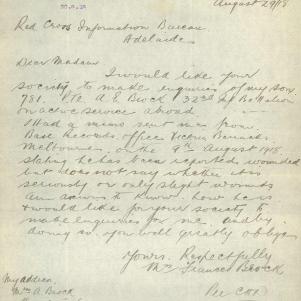 August 29/18
30.8.18
Red Cross Information Bureau
Adelaide
Dear Madam
I would like your
society to make enquiries of my son
781 Pte A. E. Brock 32nd Battalion
on active service abroad
I had a memo sent me from
Base Records Office Victoria Barracks
Melbourne on the 9th August 1918
stating he has been reported wounded
but does not say whether it is
seriously or only slight wounds
am anxious to know how he is
& would like for your society to
make enquiries for me and by
doing so you will greatly oblige
Yours Respectfully
Mrs Frances Brock
My address
Mrs A Brock